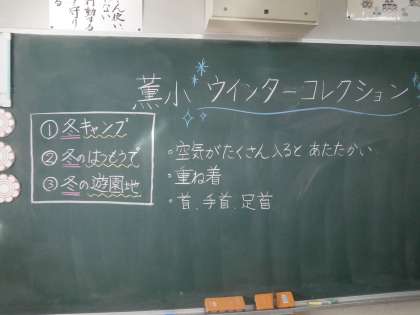 薫小 ウインターコレクション
①冬キャンプ
②冬のはつもうで
③冬の遊園地
・空気がたくさん入ると あたたかい
・重ね着
・首、手首、足首